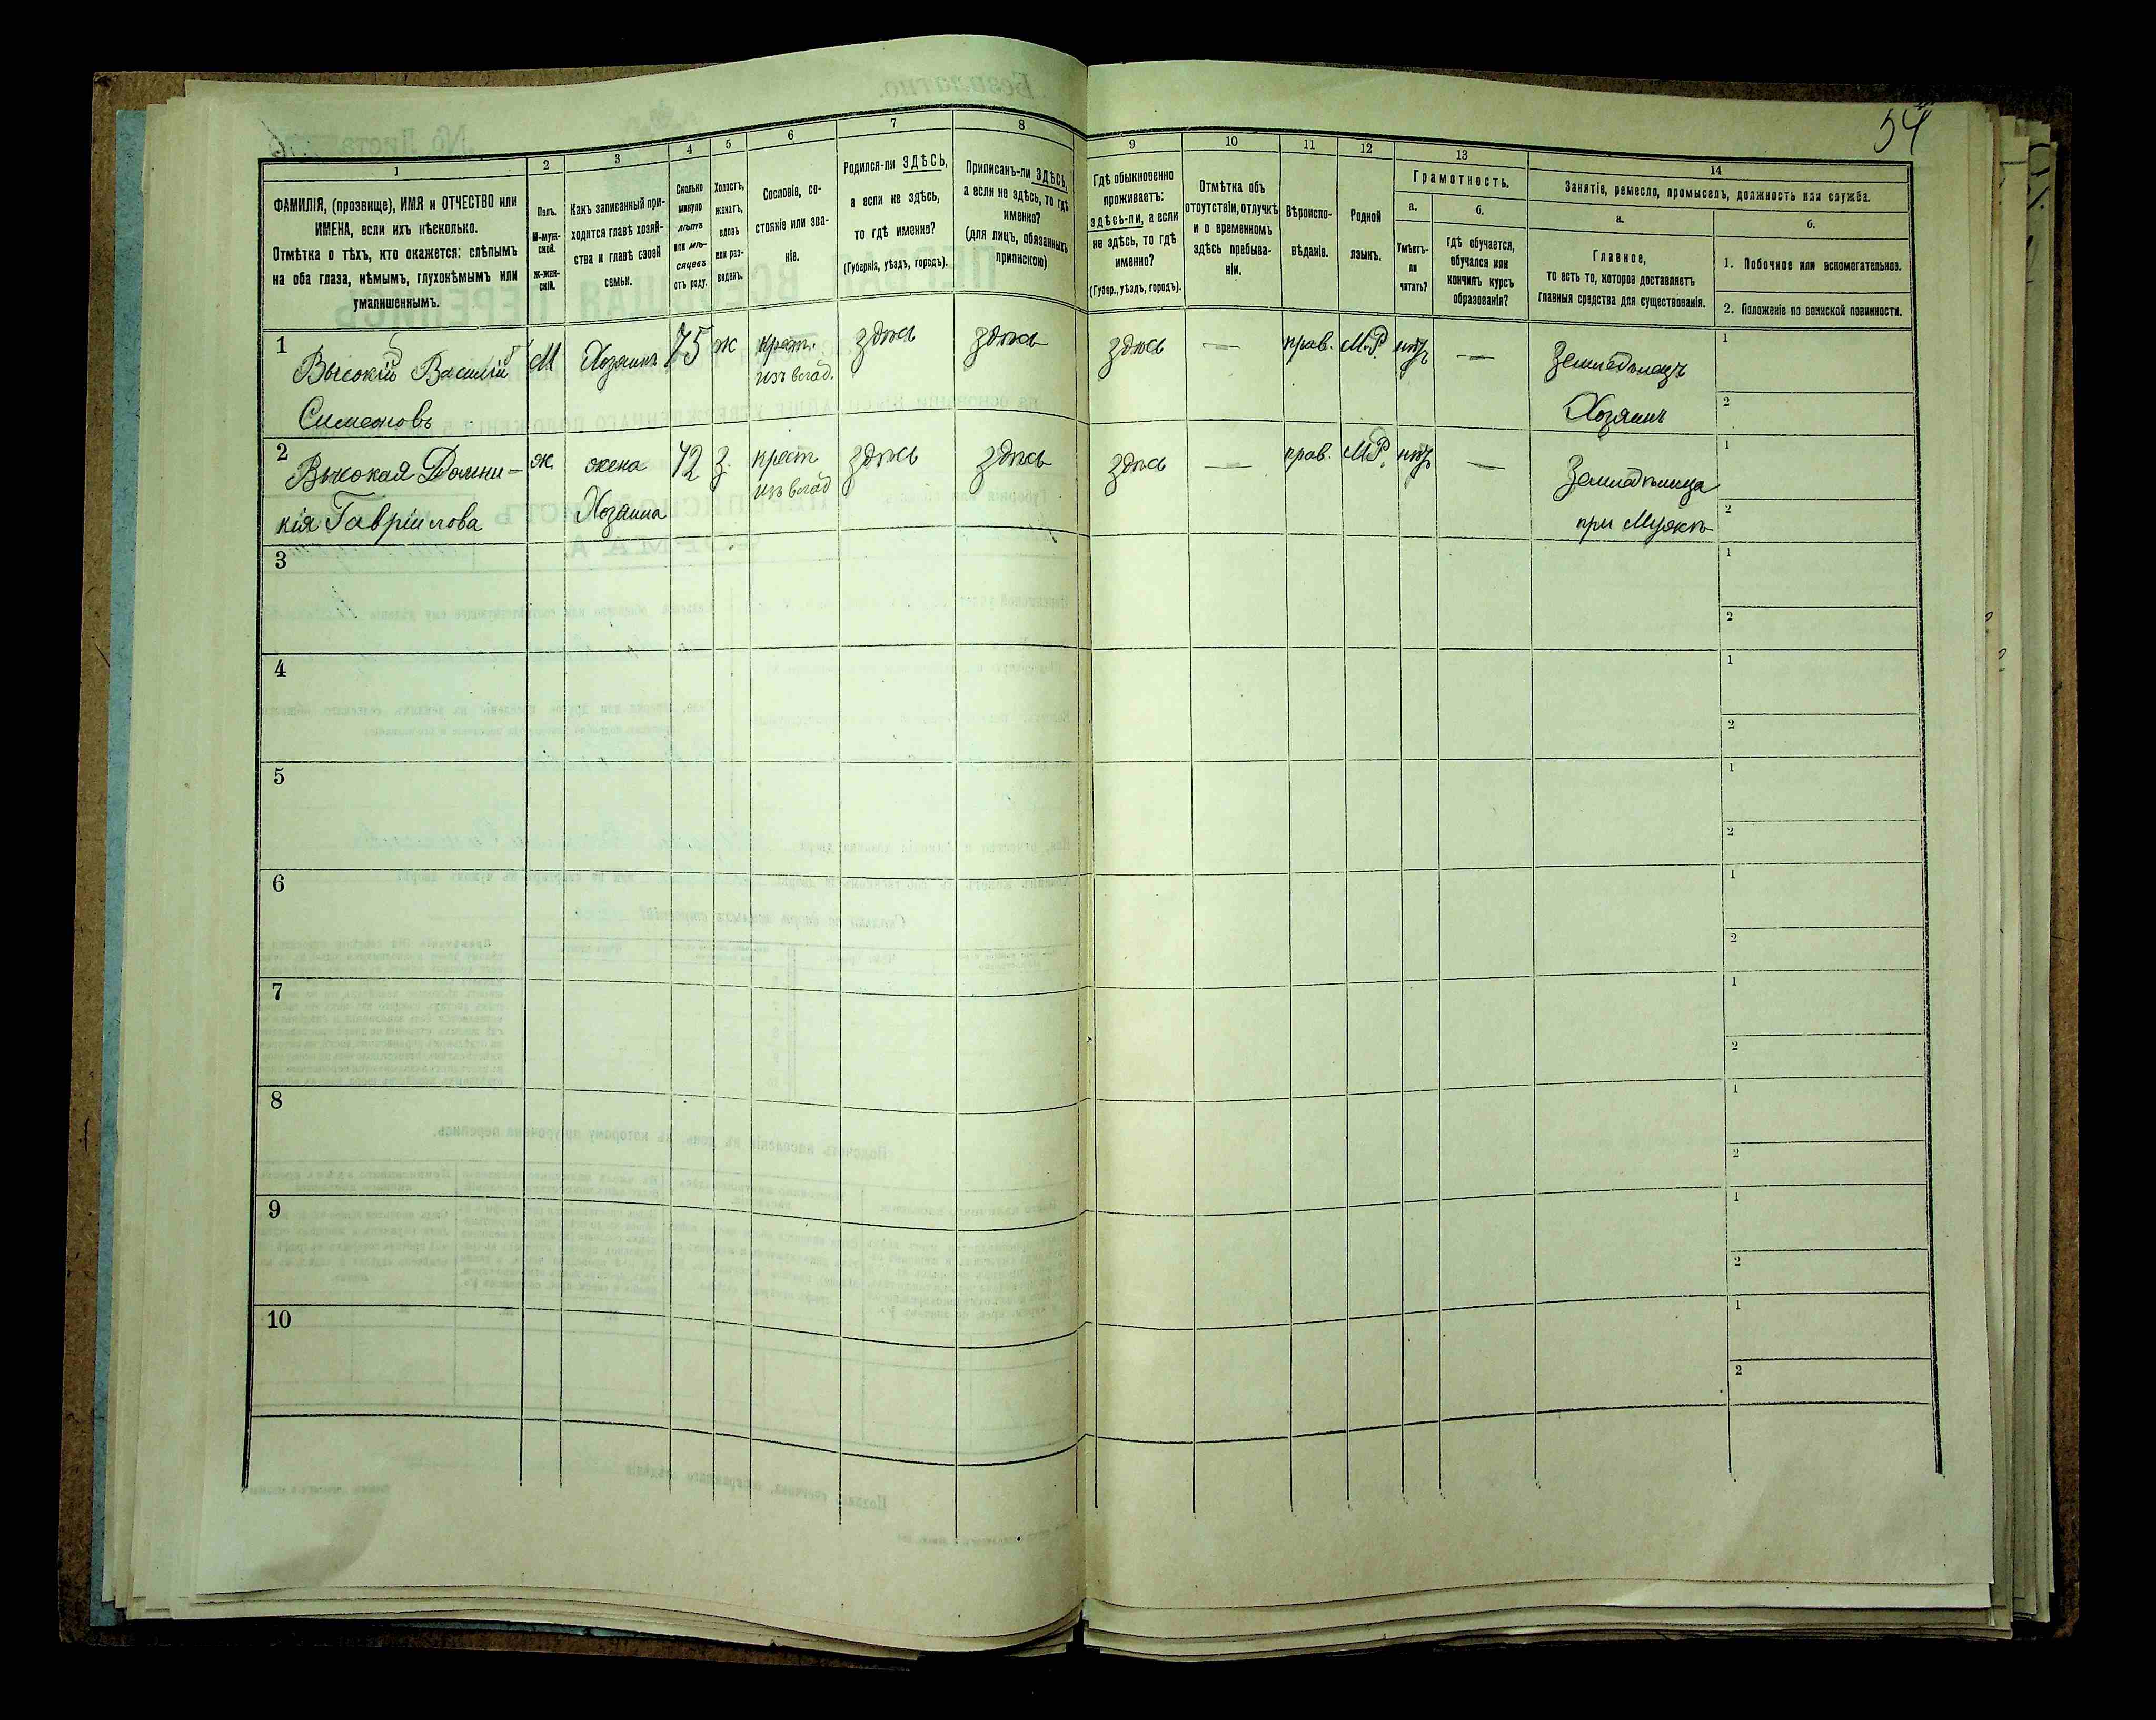 54
1
2
3
4
5
6
7
8
9
10
11
12
13
14
ФАМИЛІЯ, (прозвище), ИМЯ и ОТЧЕСТВО или
ИМЕНА, если ихъ нѣсколько.
Отмѣтка о тѣхъ, кто окажется: слѣпымъ
на оба глаза, нѣмымъ, глухонѣмымъ или
умалишеннымъ.
Полъ.
М-муж-
ской.
ж-жен-
скій.
Какъ записанный при-
ходится главѣ хозяй-
ства и главѣ своей
семьи.
Сколько
минуло
лѣтъ
или мѣ-
сяцевъ
отъ роду.
Холостъ,
женатъ,
вдовъ
или раз-
веденъ.
Сословіе, со-
стояніе или зва-
ніе.
Родился-ли ЗДѢСЬ,
а если не здѣсь,
то гдѣ именно?
(Губернія, уѣздъ, городъ).
Приписанъ-ли ЗДѢСЬ,
а если не здѣсь, то гдѣ
именно?
(для лицъ, обязанныхъ
припискою)
Гдѣ обыкновенно
проживаетъ:
здѣсь-ли, а если
не здѣсь, то гдѣ
именно?
(Губер., уѣздъ, городъ).
Отмѣтка объ
отсутствіи, отлучкѣ
и о временномъ
здѣсь пребыва-
ніи.
Вѣроиспо-
вѣданіе.
Родной
языкъ.
Грамотность.
а.
Умѣетъ-
ли
читать?
б.
Гдѣ обучается,
обучался или
кончилъ курсъ
образованія?
Занятіе, ремесло, промыселъ, должность или служба.
а.
Главное,
то есть то, которое доставляетъ
главныя средства для существованія.
б.
1. Побочное или вспомогательное.
2. Положеніе по воинской повинности.
1
Высокій Василій
Симеоновъ
М
Хозяинъ
75
ж
крест.
изъ влад.
здѣсь
здѣсь
здѣсь
—
прав.
М.Р.
нѣтъ
—
Земледѣлецъ
Хозяинъ
1
2
2
Высокая Домни-
кія Гавріилова
ж.
жена
Хозяина
72
З.
крест
изъ влад
здѣсь
здѣсь
здѣсь
—
прав.
М.Р.
нѣтъ
—
Земледѣлица
при Мужѣ
1
2
3
1
2
4
1
2
5
1
2
6
1
2
7
1
2
8
1
2
9
1
2
10
1
2